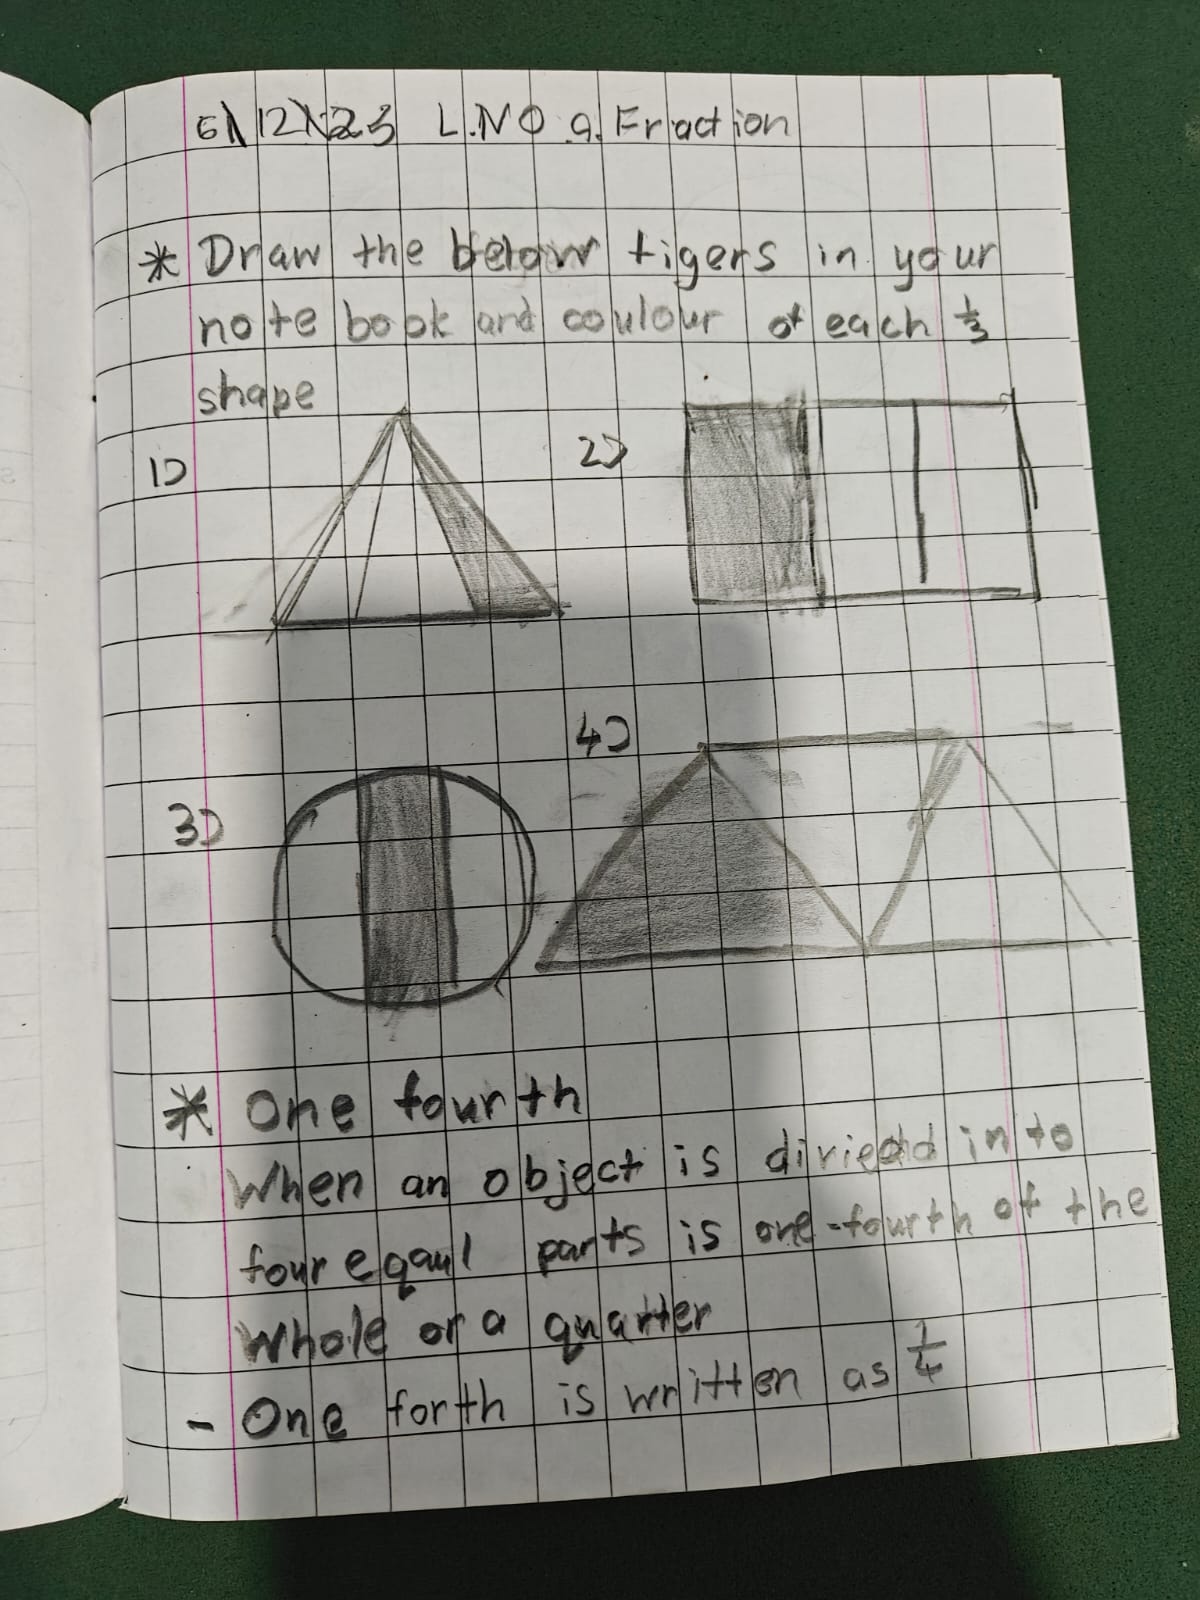 6\12\23 L.NO 9. Fraction
* Draw the below tigers in your
note book and coulour of each 1/3
shape
1)
2)
3)
4)
* One fourth
When an object is divied in to
four eqaul parts is one-fourth of the
whole or a quarter
- One forth is written as 1/4